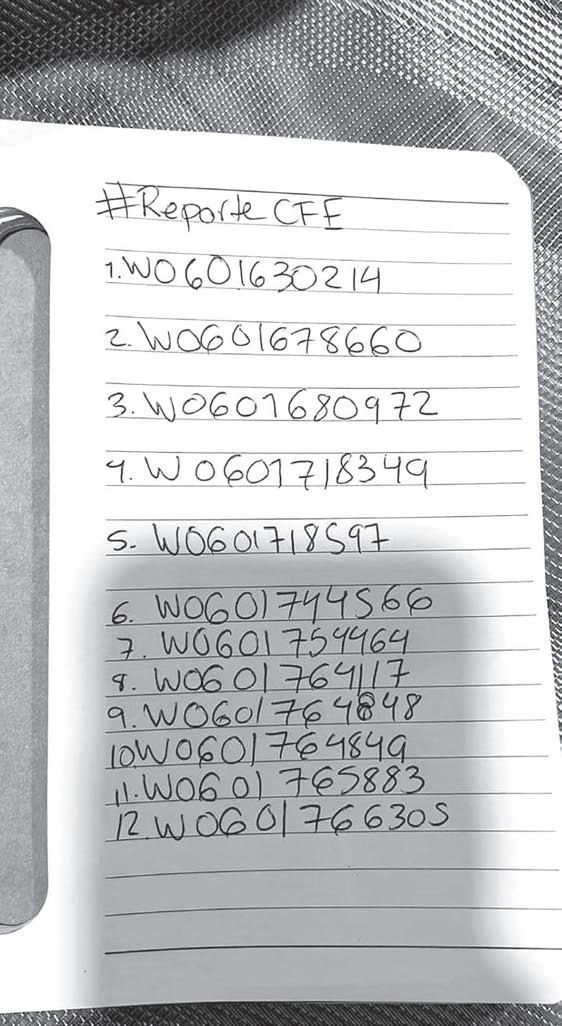 #Reporte CFE
1. W0601630214
2. W0601678660
3. W0601680972
4. W0601718349
5. W0601718597
6. W0601744566
7. W0601754464
8. W0601764117
9. W0601764848
10 W0601764849
11. W0601765883
12. W0601766305